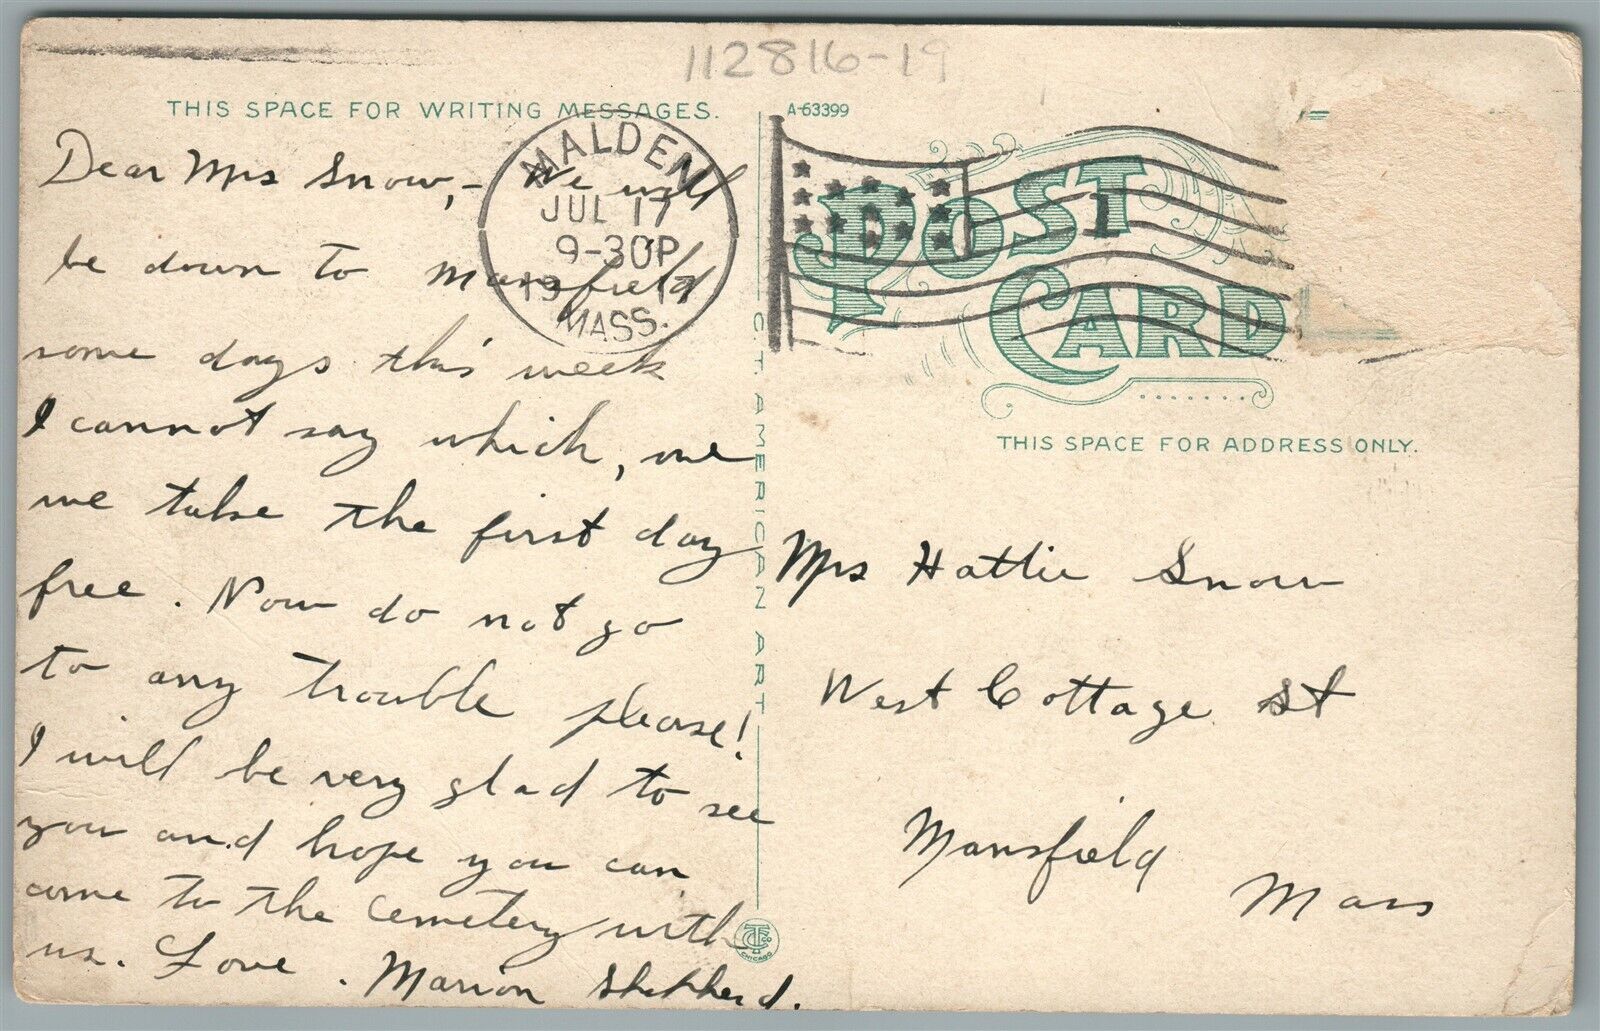 112816-19
THIS SPACE FOR WRITING MESSAGES.
A-63399
MALDEN
JUL 17
9-30P
19 17
MASS.
1
POST
CARD
THIS SPACE FOR ADDRESS ONLY.
Dear Mrs Snow, - We will
be down to Mansfield
some days this week
I cannot say which, we
we take the first day
free. Now do not go
to any trouble please!
I will be very glad to see
you and hope you can
come to the cemetery with
us. Love. Marion Shepherd.
C.T. AMERICAN ART
CHICAGO
Mrs Hattie Snow
West Cottage St
Mansfield
Mass